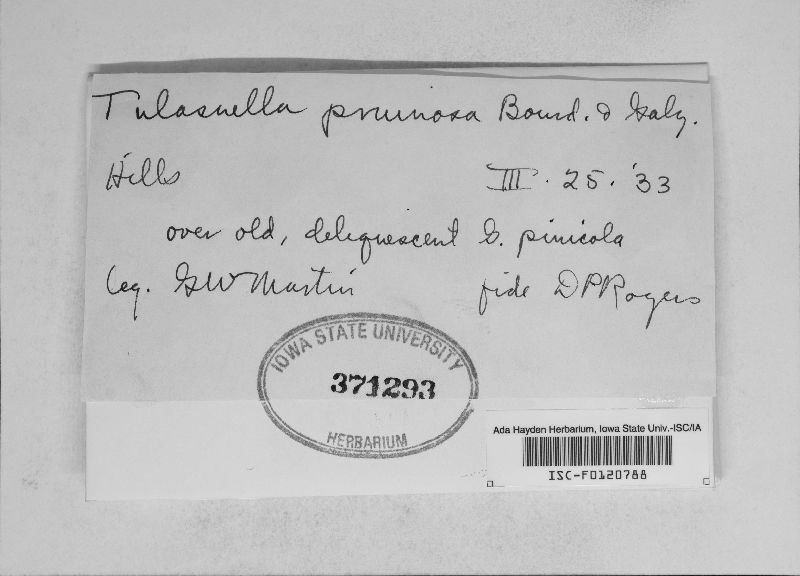 Tulasnella pruinosa Bourd. & Galz.
Hills III. 25. '33
over old, deliquescent G. pinicola
leg. GW Martin fide DPRogers
IOWA STATE UNIVERSITY
371293
HERBARIUM
Ada Hayden Herbarium, Iowa State Univ.-ISC/IA
ISC-F0120788